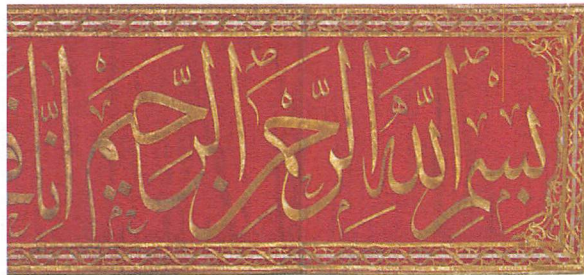 بسم الله الرحمن الرحيم انا